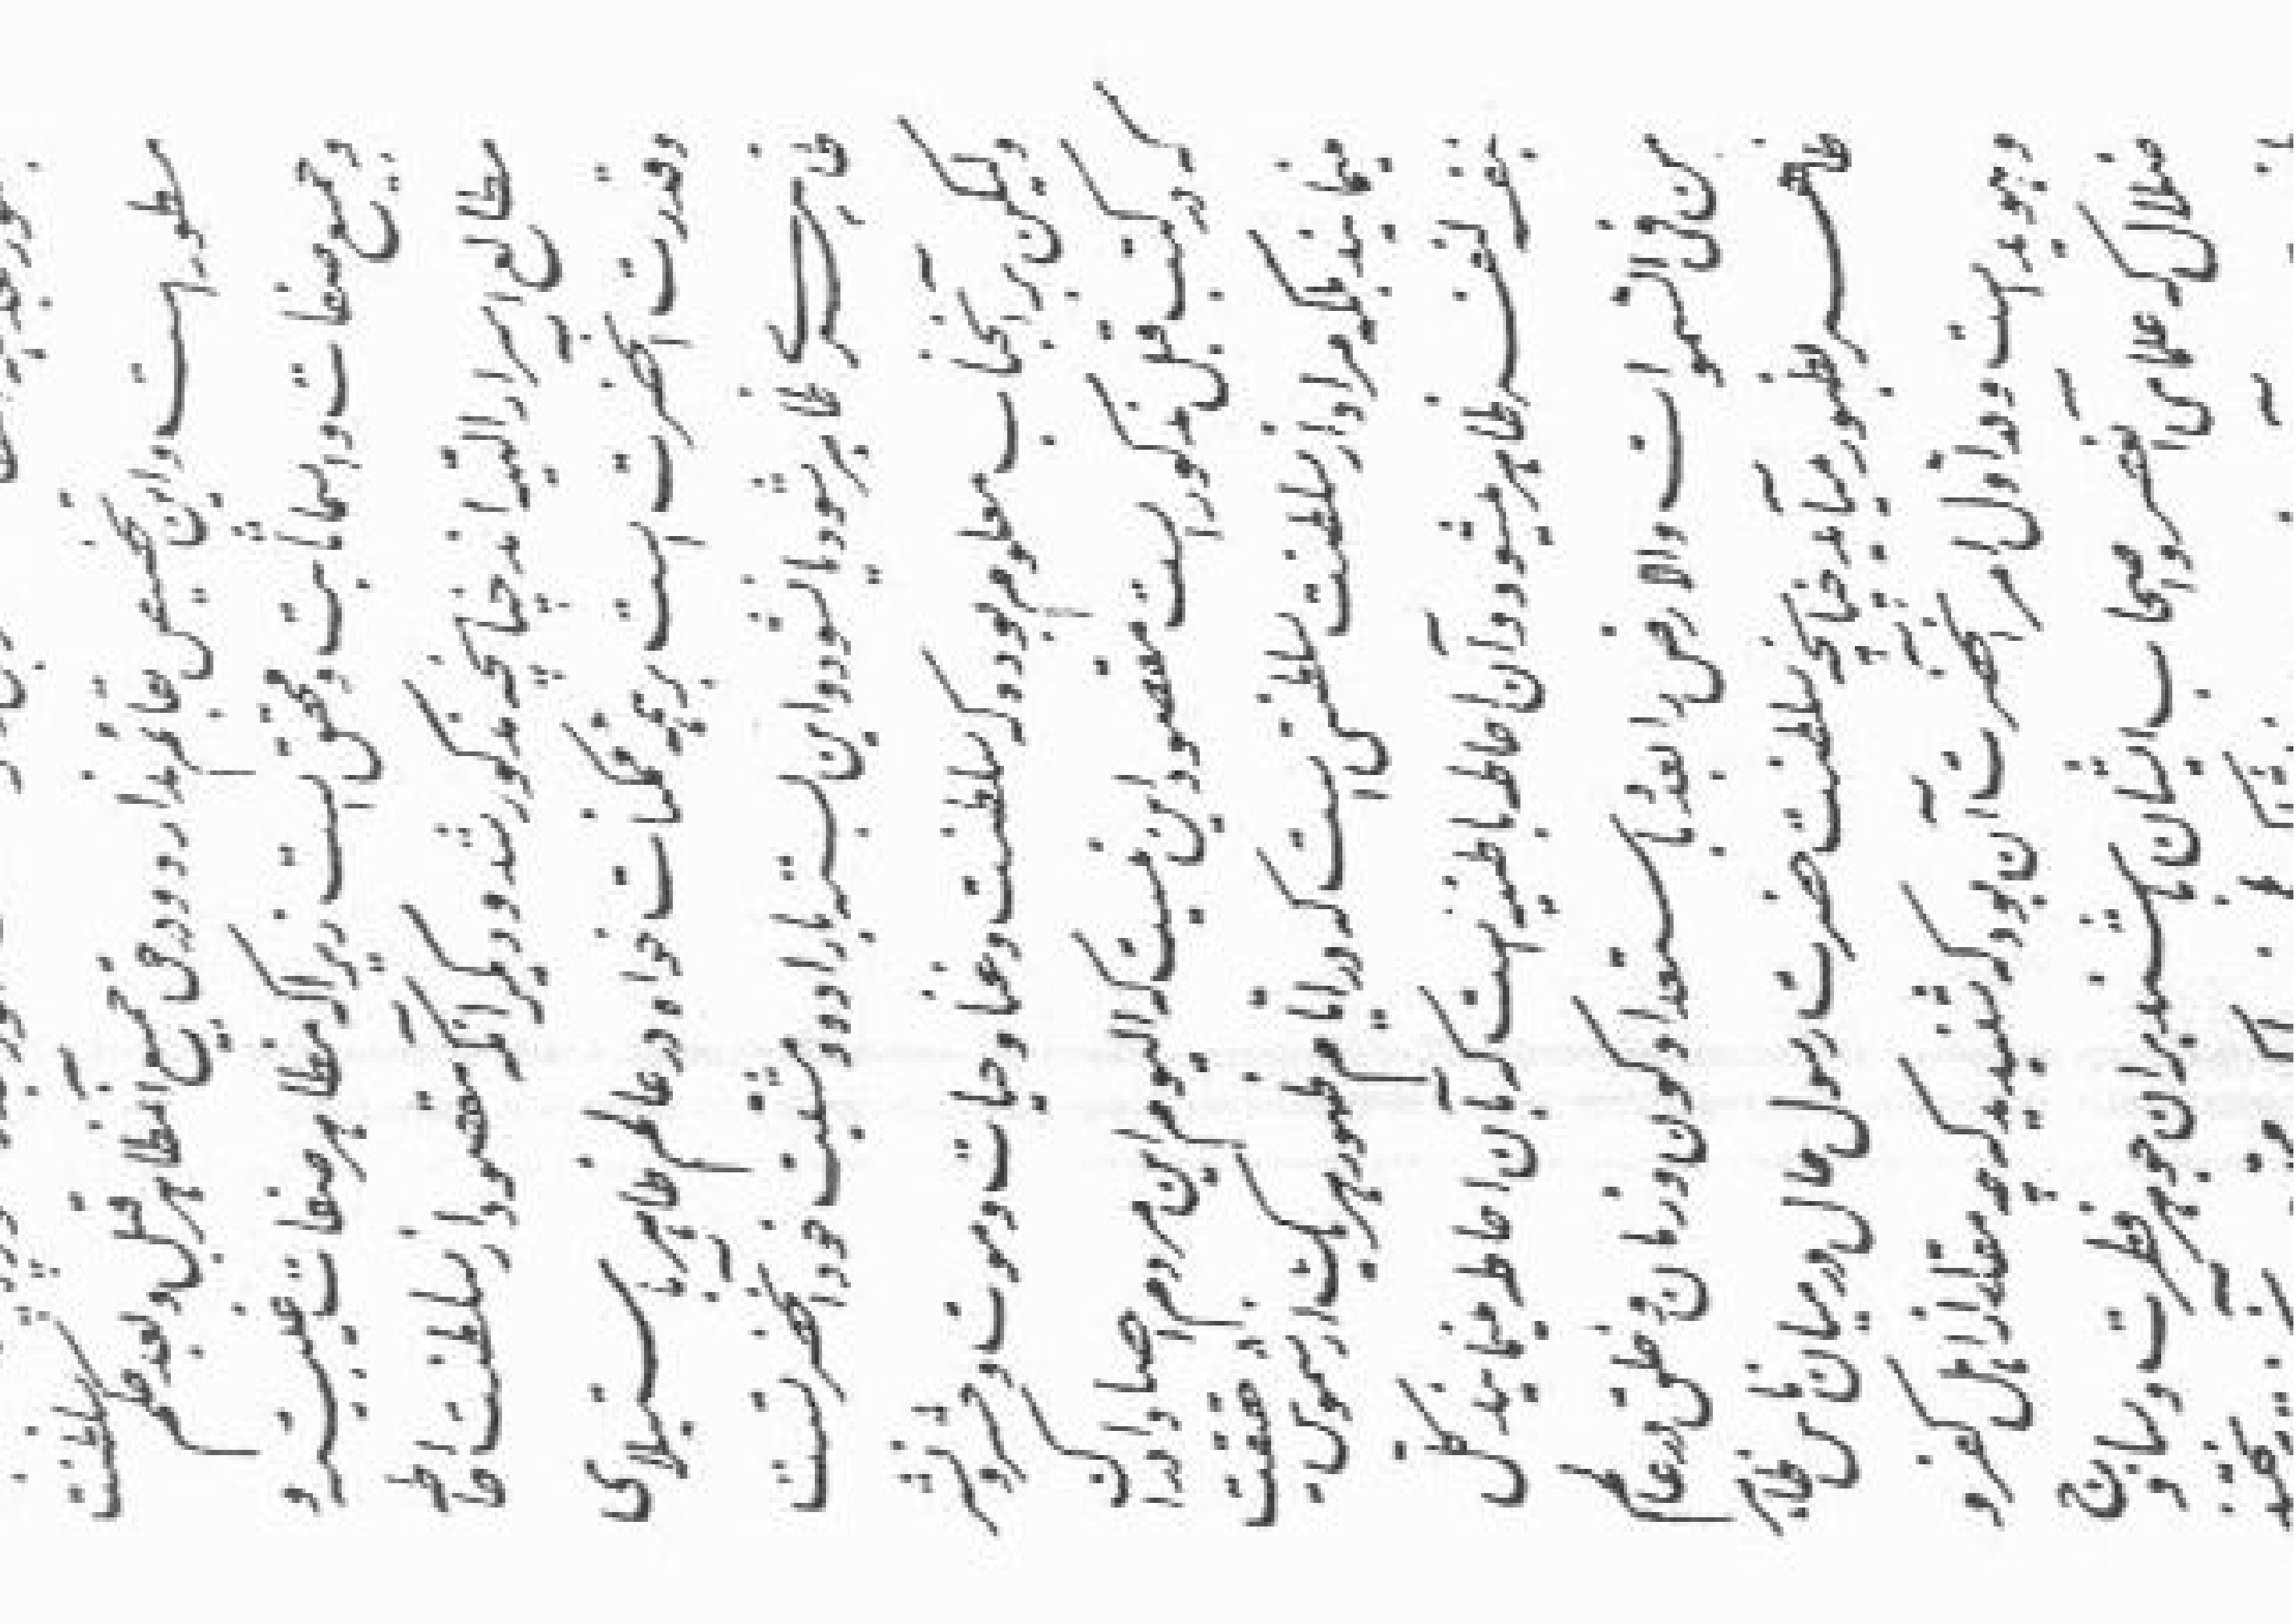 مسطور است و این تخصیص بقائم ندارد و در حق جمیع آن مظاهر قبل و بعد حکم سلطنت
و جمیع صفات و اسما ثابت و محقق است زیرا که مظاهر صفات غیبیه و
مطالع اسرار الهیه‌اند چنانچه مذکور شد و دیگر آنکه مقصود از سلطنت احاطه
و قدرت آنحضرت است بر همه ممکنات خواه در عالم ظاهر باستیلای
ظاهری ظاهر شود یا نشود و این بسته باراده و مشیت خود آنحضرت است
ولیکن بر آنجناب معلوم بوده که سلطنت و غنا و حیات و موت و حشر و نشر
که در کتب قبل مذکور است مقصود این نیست که الیوم این مردم احصا و ادراک
مینمایند بلکه مراد از سلطنت سلطنتی است که در ایام ظهور هر یک از شموس حقیقت
بنفسه لنفسه ظاهر میشود و آن احاطه باطنیه است که بآن احاطه مینمایند کل
من فی السموات والارض را و بعد باستعداد کون و زمان و خلق در عالم
ظاهر بظهور میآید چنانچه سلطنت حضرت رسول حال در میان ناس ظاهر
و هویدا است و در اول امر آنحضرت آن بود که شنیدید چه مقدار از اهل کفر و
ضلال که علمای آن عصر و اصحاب ایشان باشند بر آن جوهر فطرت و ساذج